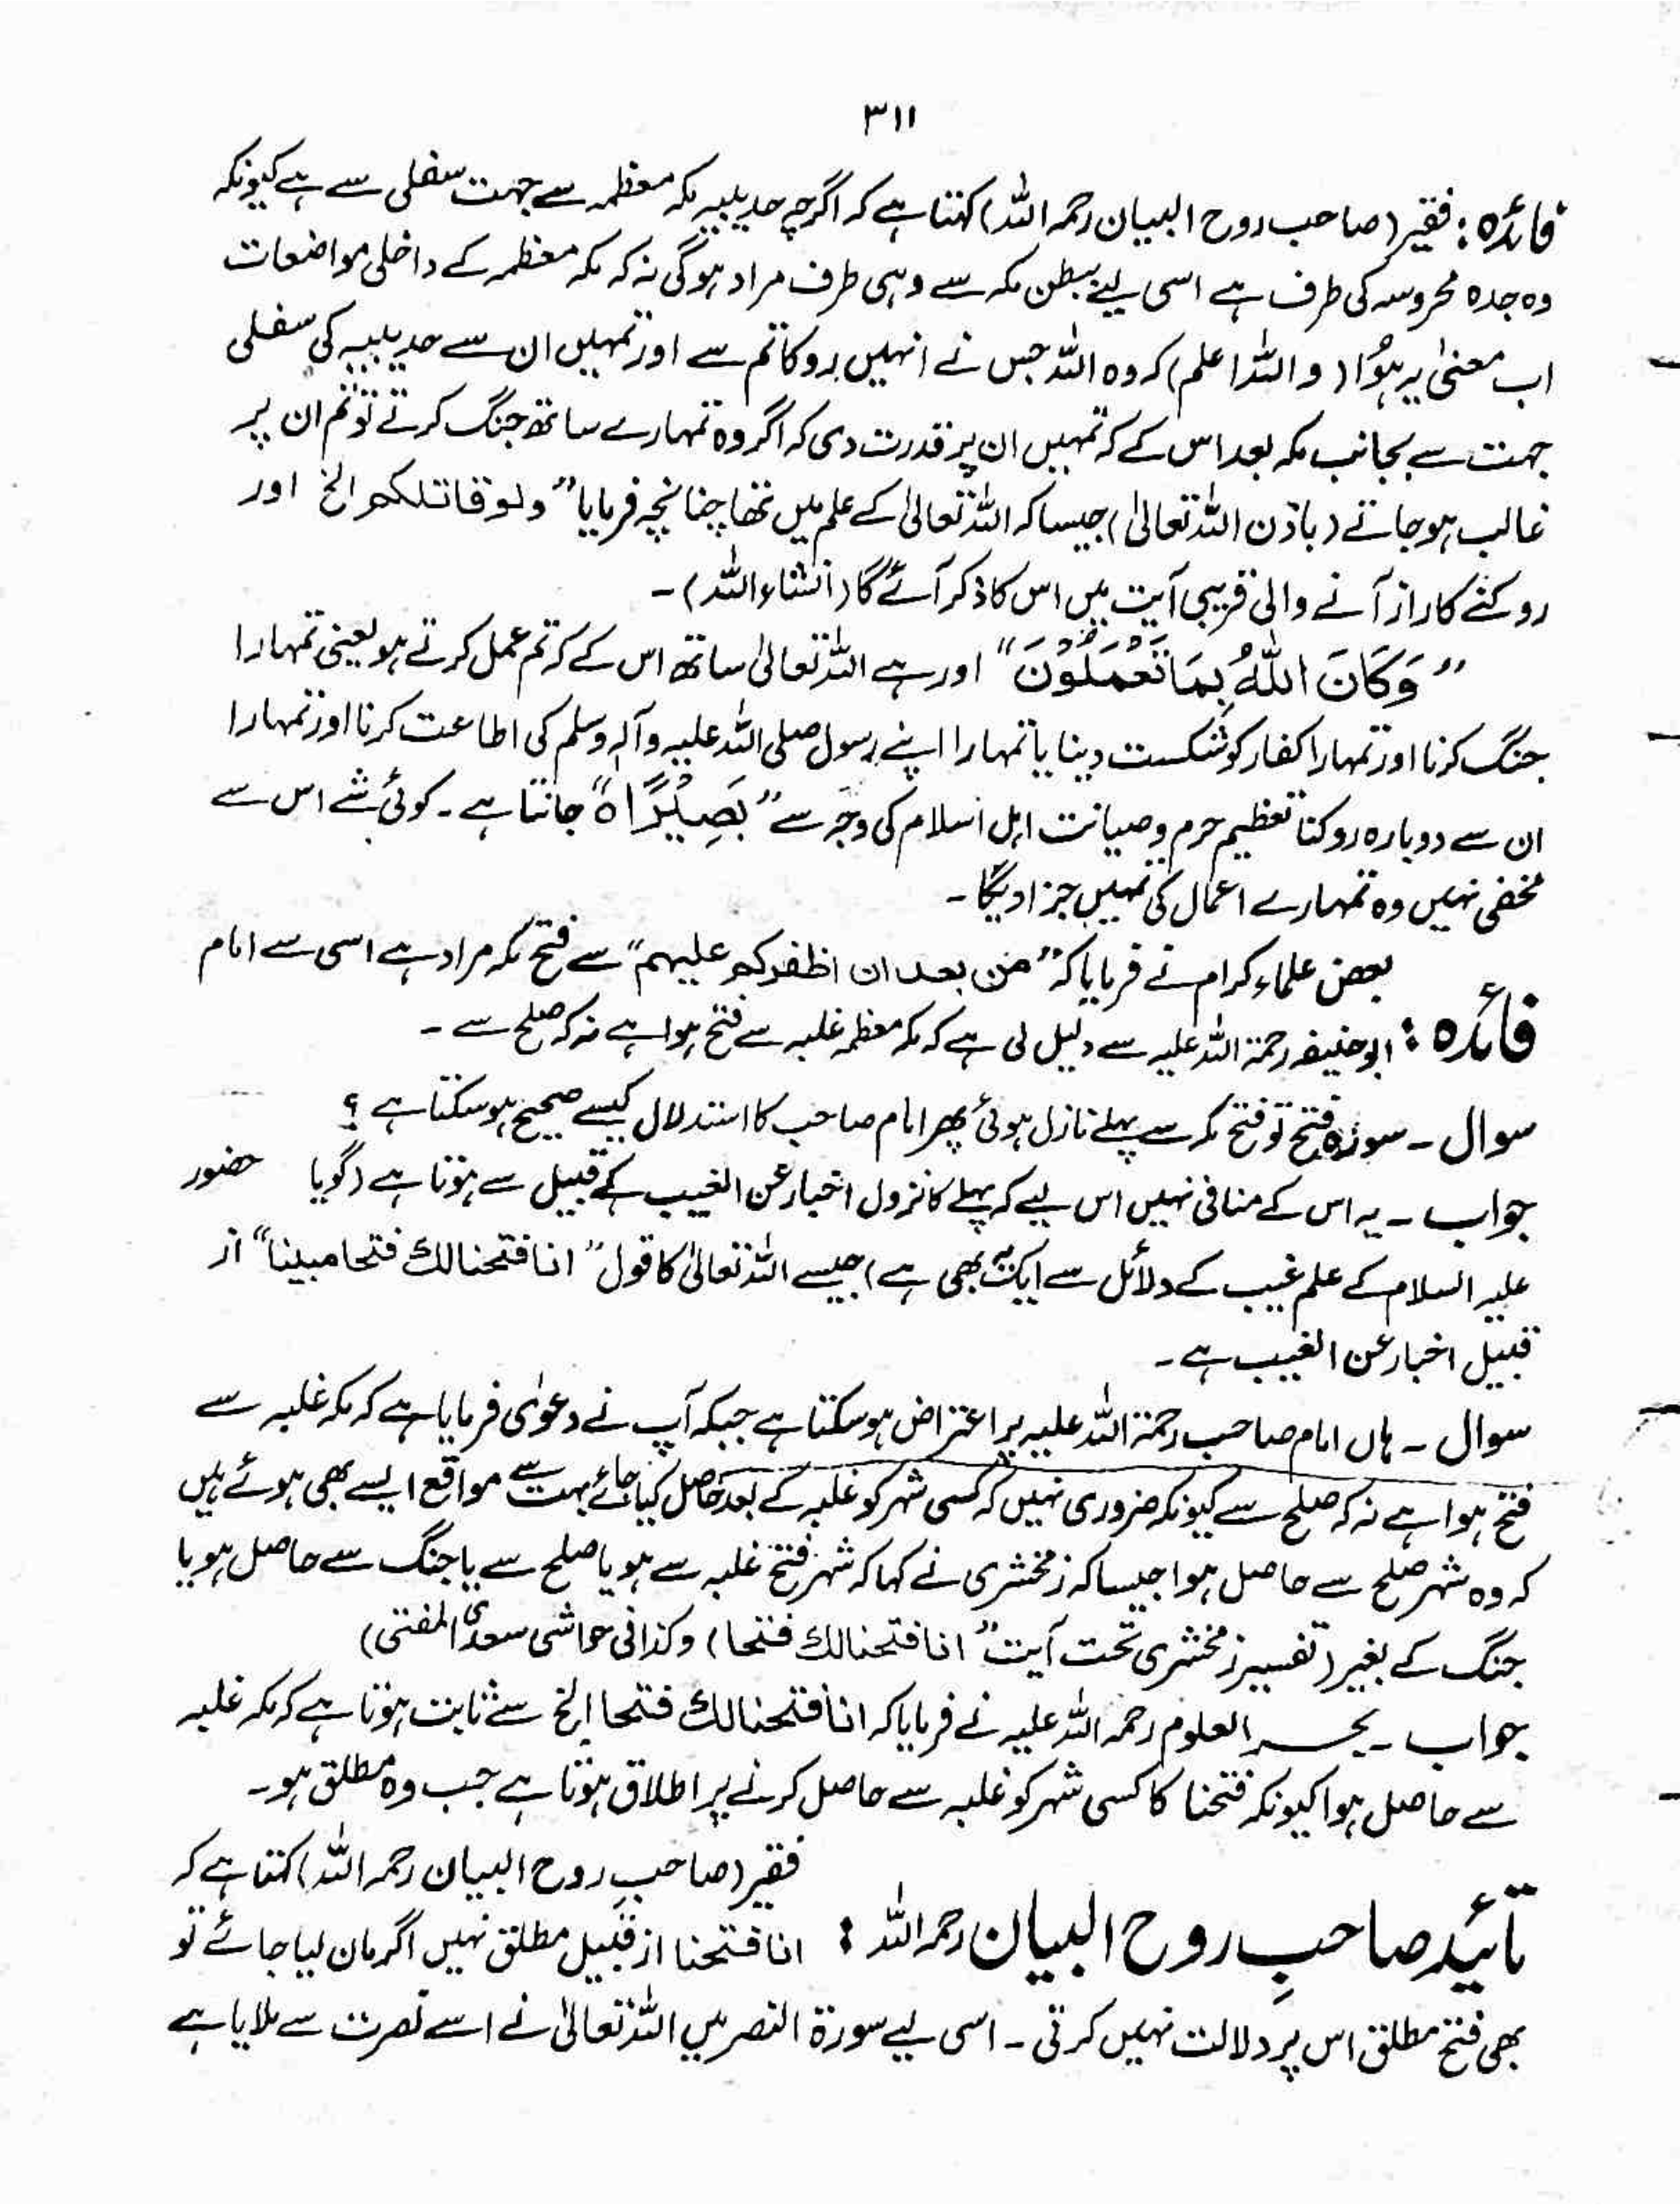 ۳۱۱
فائدہ : فقیر (صاحب روح البیان رحمہ اللہ) کہتا ہے کہ اگرچہ حدیبیہ مکہ معظمہ سے جہت سفلی سے ہے کیونکہ
وہ جدہ محروسہ کی طرف ہے اسی لیے ببطن مکہ سے وہی طرف مراد ہوگی نہ کہ مکہ معظمہ کے داخلی مواضعات
اب معنیٰ یہ ہُوا (واللہ اعلم) کہ وہ اللہ جس نے انہیں روکا تم سے اور تمہیں ان سے حدیبیہ کی سفلی
جہت سے بجانب مکہ بعد اس کے کہ تمہیں ان پر قدرت دی کہ اگر وہ تمہارے ساتھ جنگ کرتے تو تم ان پر
غالب ہو جاتے (باذن اللہ تعالیٰ) جیسا کہ اللہ تعالیٰ کے علم میں تھا چنانچہ فرمایا ”ولو قاتلکم الخ اور
روکنے کا راز آنے والی قریبی آیت میں اس کا ذکر آئے گا (انشاء اللہ) ۔
”وَكَانَ اللّٰهُ بِمَا تَعْمَلُوْنَ“ اور ہے اللہ تعالیٰ ساتھ اس کے کہ تم عمل کرتے ہو یعنی تمہارا
جنگ کرنا اور تمہارا کفار کو شکست دینا یا تمہارا اپنے رسول صلی اللہ علیہ وآلہ وسلم کی اطاعت کرنا اور تمہارا
ان سے دوبارہ روکنا تعظیم حرم وصیانت اہل اسلام کی وجہ سے ”بَصِيْرًاه“ جانتا ہے ۔ کوئی شے اس سے
مخفی نہیں وہ تمہارے اعمال کی تمہیں جزا دیگا ۔
بعض علماء کرام نے فرمایا کہ ”من بعد ان اظفرکم علیہم“ سے فتح مکہ مراد ہے اسی سے امام
فائدہ : ابوحنیفہ رحمۃ اللہ علیہ سے دلیل لی ہے کہ مکہ معظمہ غلبہ سے فتح ہوا ہے نہ کہ صلح سے ۔
سوال ۔ سورہ فتح تو فتح مکہ سے پہلے نازل ہوئی پھر امام صاحب کا استدلال کیسے صحیح ہوسکتا ہے ؟
جواب ۔ یہ اس کے منافی نہیں اس لیے کہ پہلے کا نزول اخبار عن الغیب کے قبیل سے ہوتا ہے (گویا حضور
علیہ السلام کے علم غیب کے دلائل سے ایک یہ بھی ہے) جیسے اللہ تعالیٰ کا قول ”انا فتحنالك فتحا مبینا“ از
قبیل اخبار عن الغیب ہے ۔
سوال ۔ ہاں امام صاحب رحمۃ اللہ علیہ پر اعتراض ہوسکتا ہے جبکہ آپ نے دعوٰی فرمایا ہے کہ مکہ غلبہ سے
فتح ہوا ہے نہ کہ صلح سے کیونکہ ضروری نہیں کہ کسی شہر کو غلبہ کے بعد حاصل کیا جائے بہت سے مواقع ایسے بھی ہوئے ہیں
کہ وہ شہر صلح سے حاصل ہوا جیسا کہ زمخشری نے کہا کہ شہر فتح غلبہ سے ہو یا صلح سے یا جنگ سے حاصل ہو یا
جنگ کے بغیر (تفسیر زمخشری تحت آیت ”انا فتحنالك فتحا) وکذا فی حواشی سعدی المفتی)
جواب ۔ بحر العلوم رحمہ اللہ علیہ نے فرمایا کہ انا فتحنالك فتحا الخ سے ثابت ہوتا ہے کہ مکہ غلبہ
سے حاصل ہوا کیونکہ فتحنا کا کسی شہر کو غلبہ سے حاصل کرنے پر اطلاق ہوتا ہے جب وہ مطلق ہو ۔
فقیر (صاحب روح البیان رحمہ اللہ) کہتا ہے کہ
تائید صاحبِ روح البیان رحمہ اللہ : انا فتحنا از قبیل مطلق نہیں اگر مان لیا جائے تو
بھی فتح مطلق اس پر دلالت نہیں کرتی ۔ اسی لیے سورۃ النصر میں اللہ تعالیٰ نے اسے نصرت سے ملایا ہے